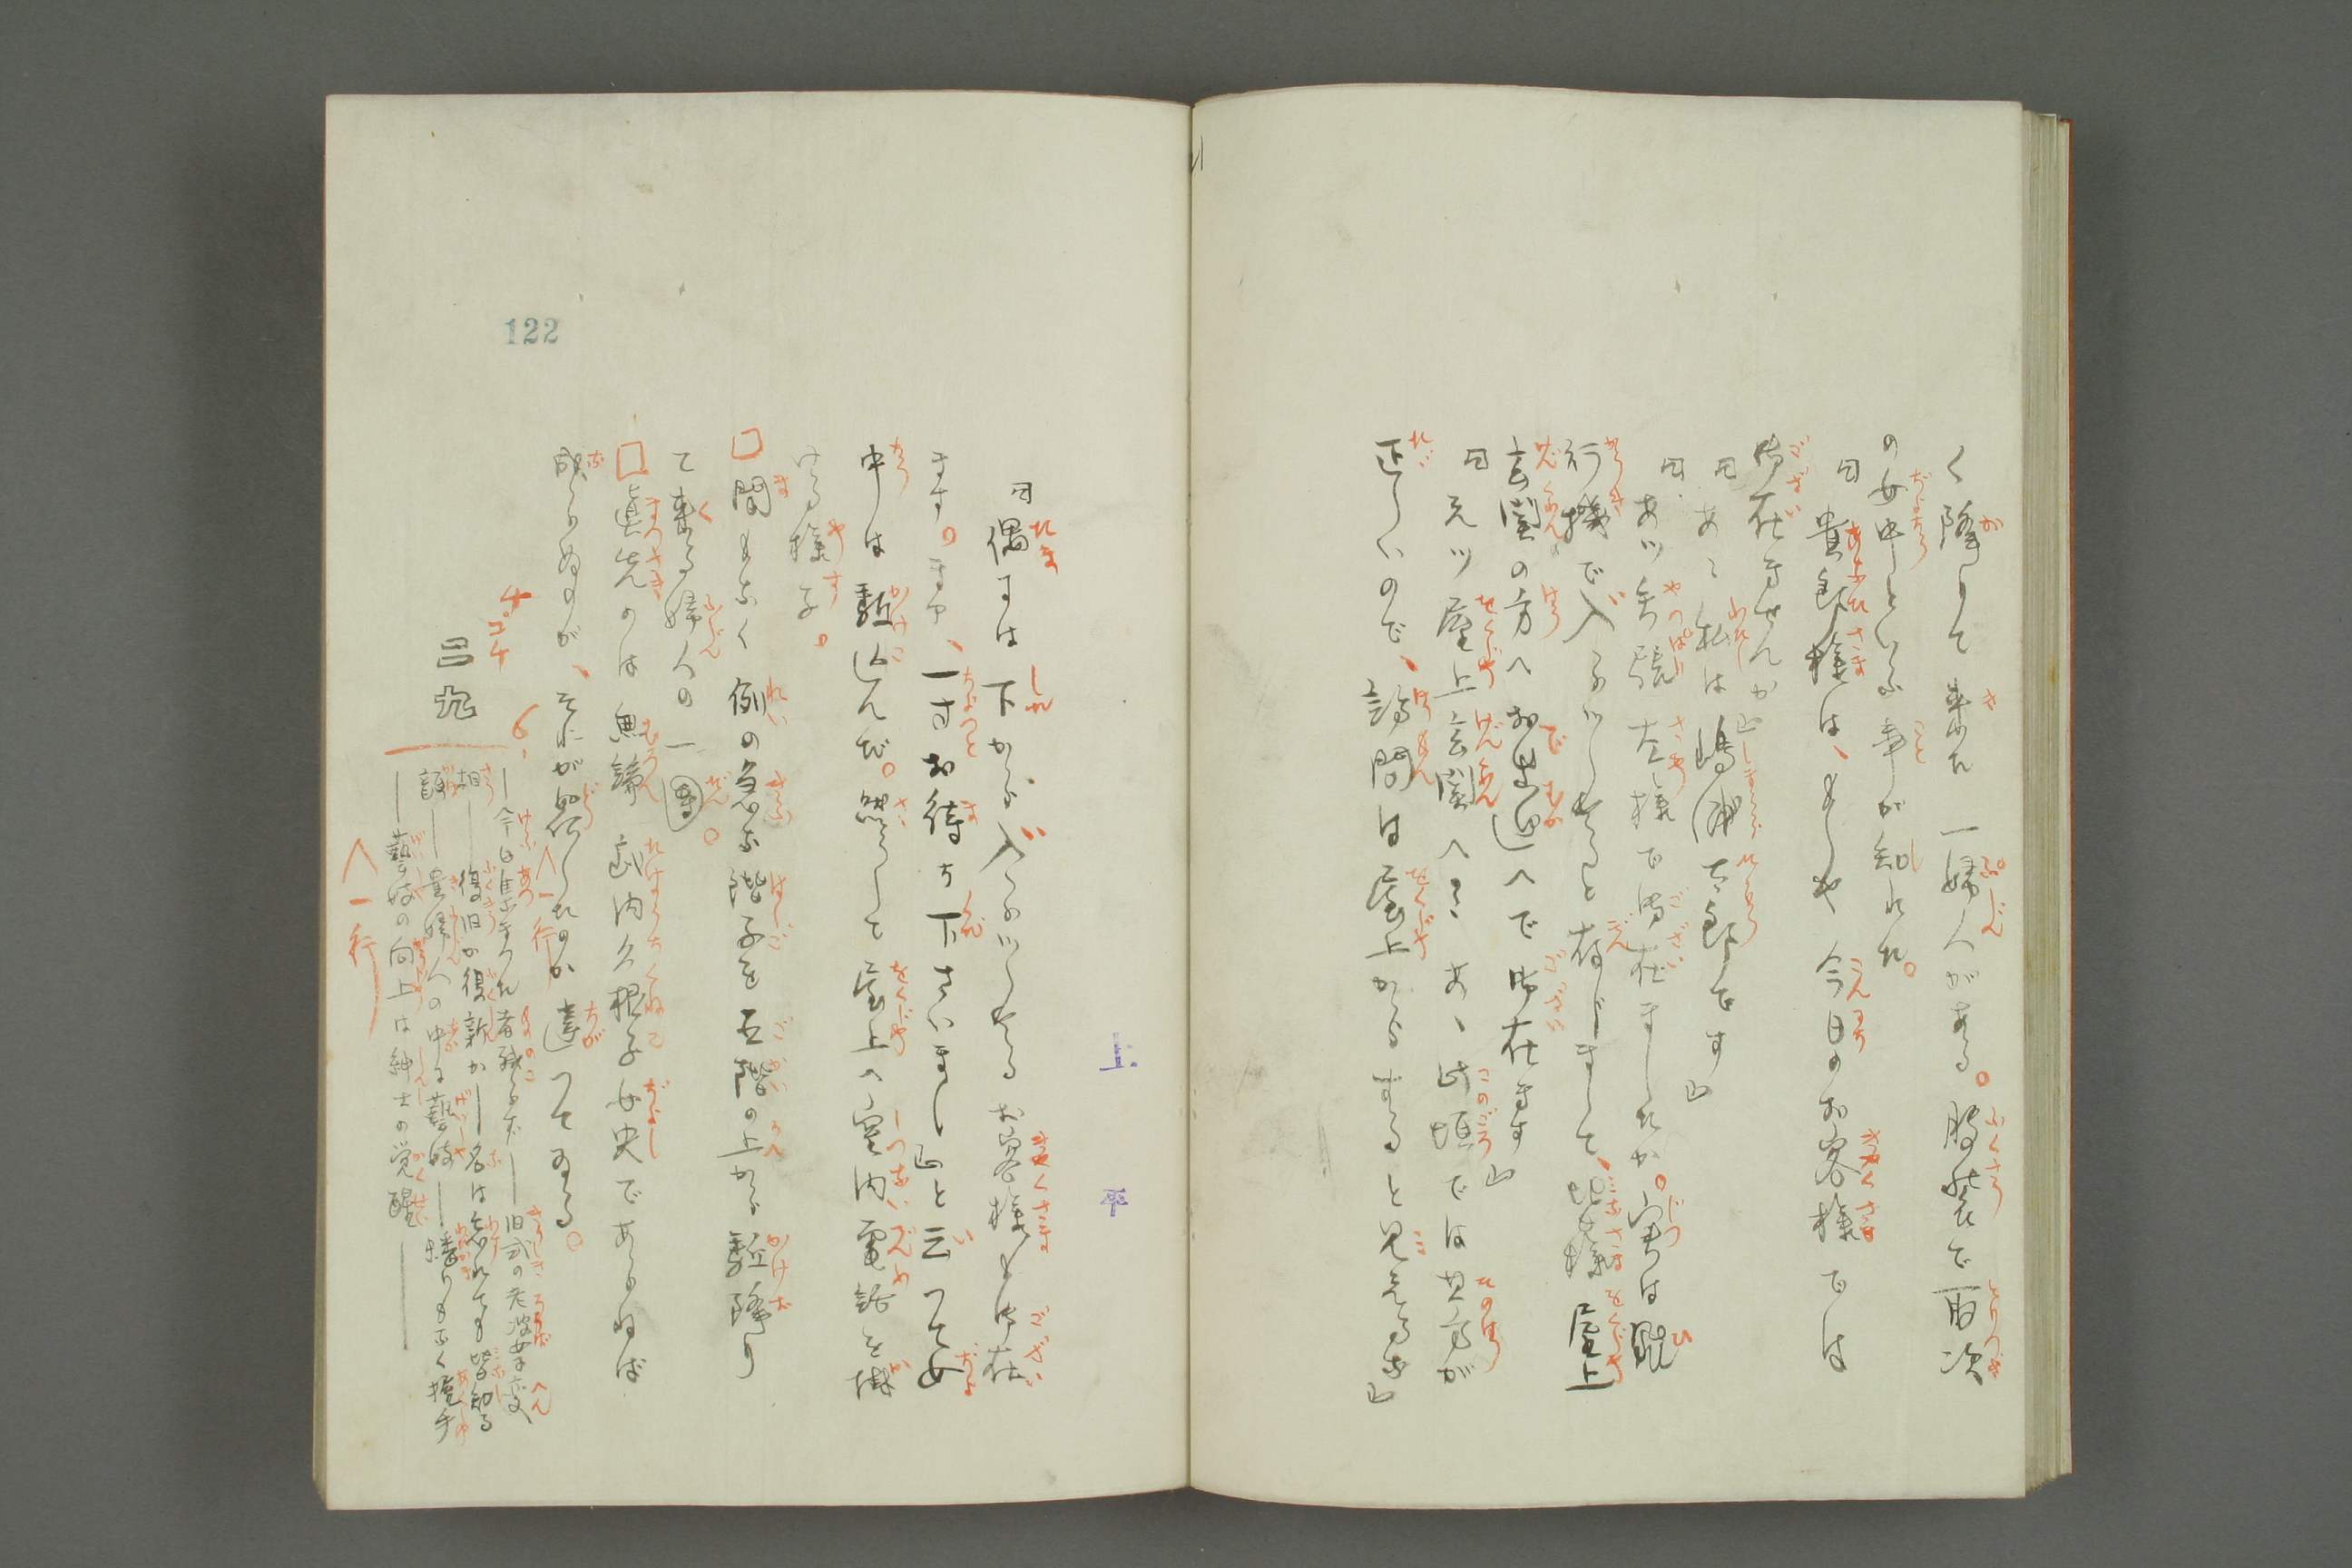 く降りて来た一婦人がある。服装で取次
の女中といふ事が知れた。
「貴郎様は、もしや今日のお客様では
御在ませんか」
「あゝ私は嶋浦太郎です」
「あッ矢張左様で御在ましたか。実は飛
行機で入らッしやると存じまして、皆様屋上
玄関の方へお出迎へで御在ます」
「えッ屋上玄関へ‥あゝ此頃では其方が
正しいので、訪問は屋上からすると見えるな」
「偶には下から入らッしやるお客様も御在
ます。まア、一寸お待ち下さいまし」と云つて女
中は駈込んだ。然うして屋上へ室内電話を掛
ける様子。
間もなく例の急な階子を五階の上から駈降り
て来る婦人の一団。
真先のは無論武内久根子女史であらねば
成らぬのが、それが如何したのか違つてゐる。
122
上
平
4.ゴチ
6、
―今日集まつた者残らず―旧式の老婆安変
相―復旧か復新か―名は忘れても皆知る
顔―貴婦人の中る藝妓―蟠りもなく握手
―藝妓の向上は紳士の覚醒―
一行
一行